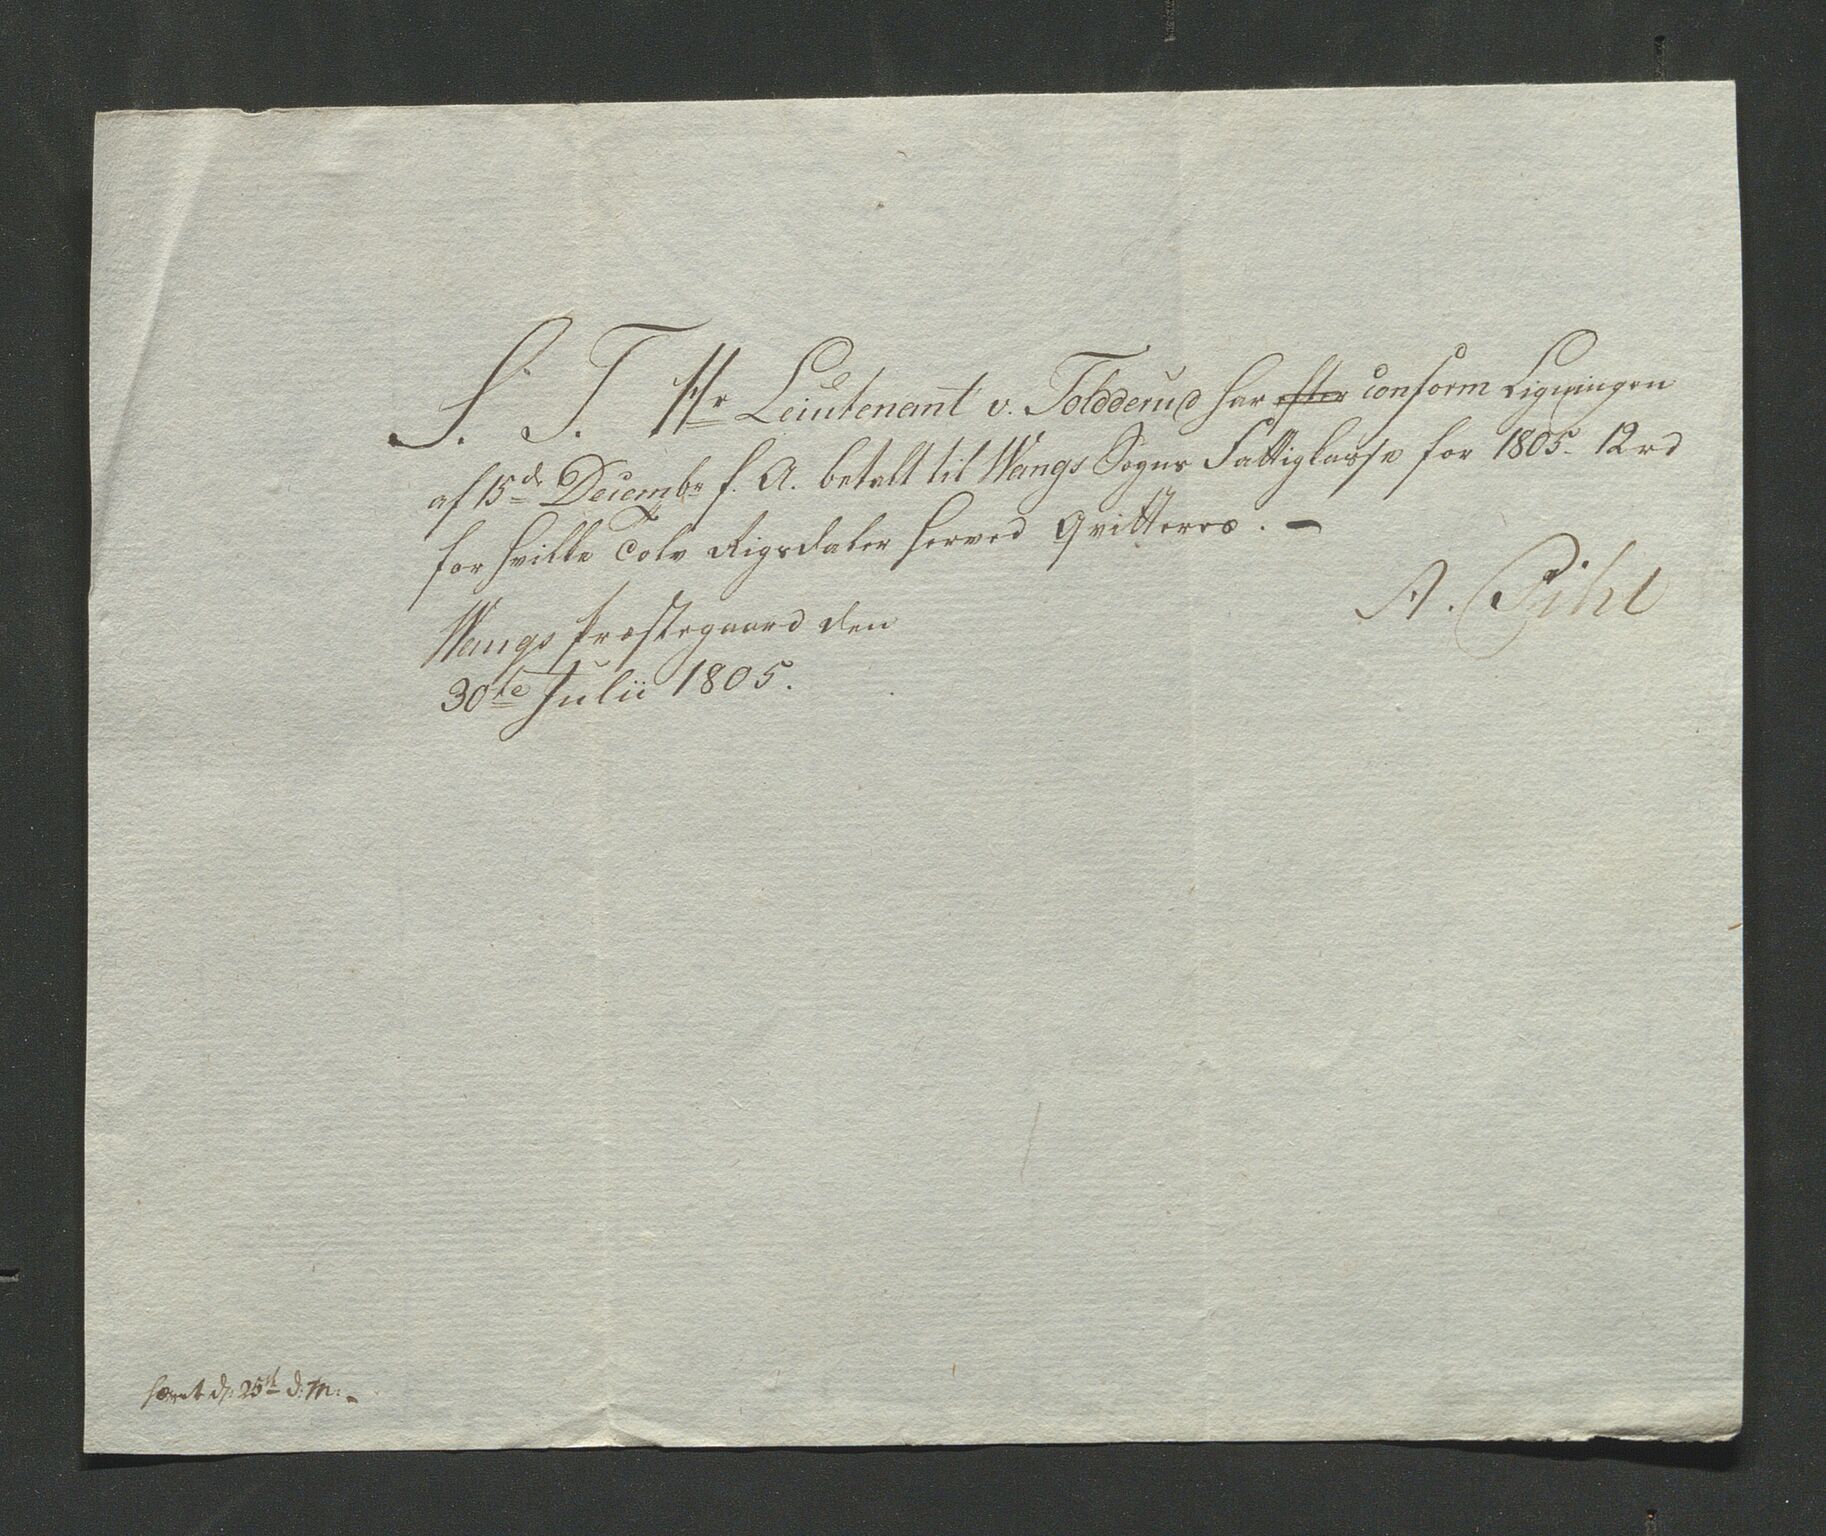 S. T. Hr Leiutenant v. Toldderud har efter conform Ligningen
af 15de Decembr f. A. betalt til Wangs Sogns Fattigkasse for 1805 - 12 rd
for hvilke Tolv Rigsdaler herved Qvitteres. -
A. Pihl
Wangs Præstegaard den
30te Julii 1805.
d: 25de d: M: -